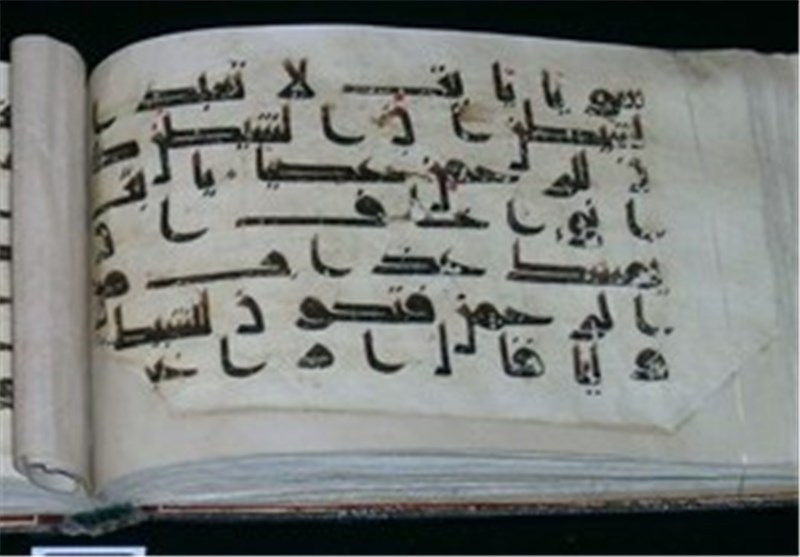 سويا يابت لا تعبد ا
لشيطن ان الشيطن كا
ن للرحمن عصيا يابت
اني اخاف ان
يمسك عذاب من
الرحمن فتكون للشيطن
وليا قال اراغب